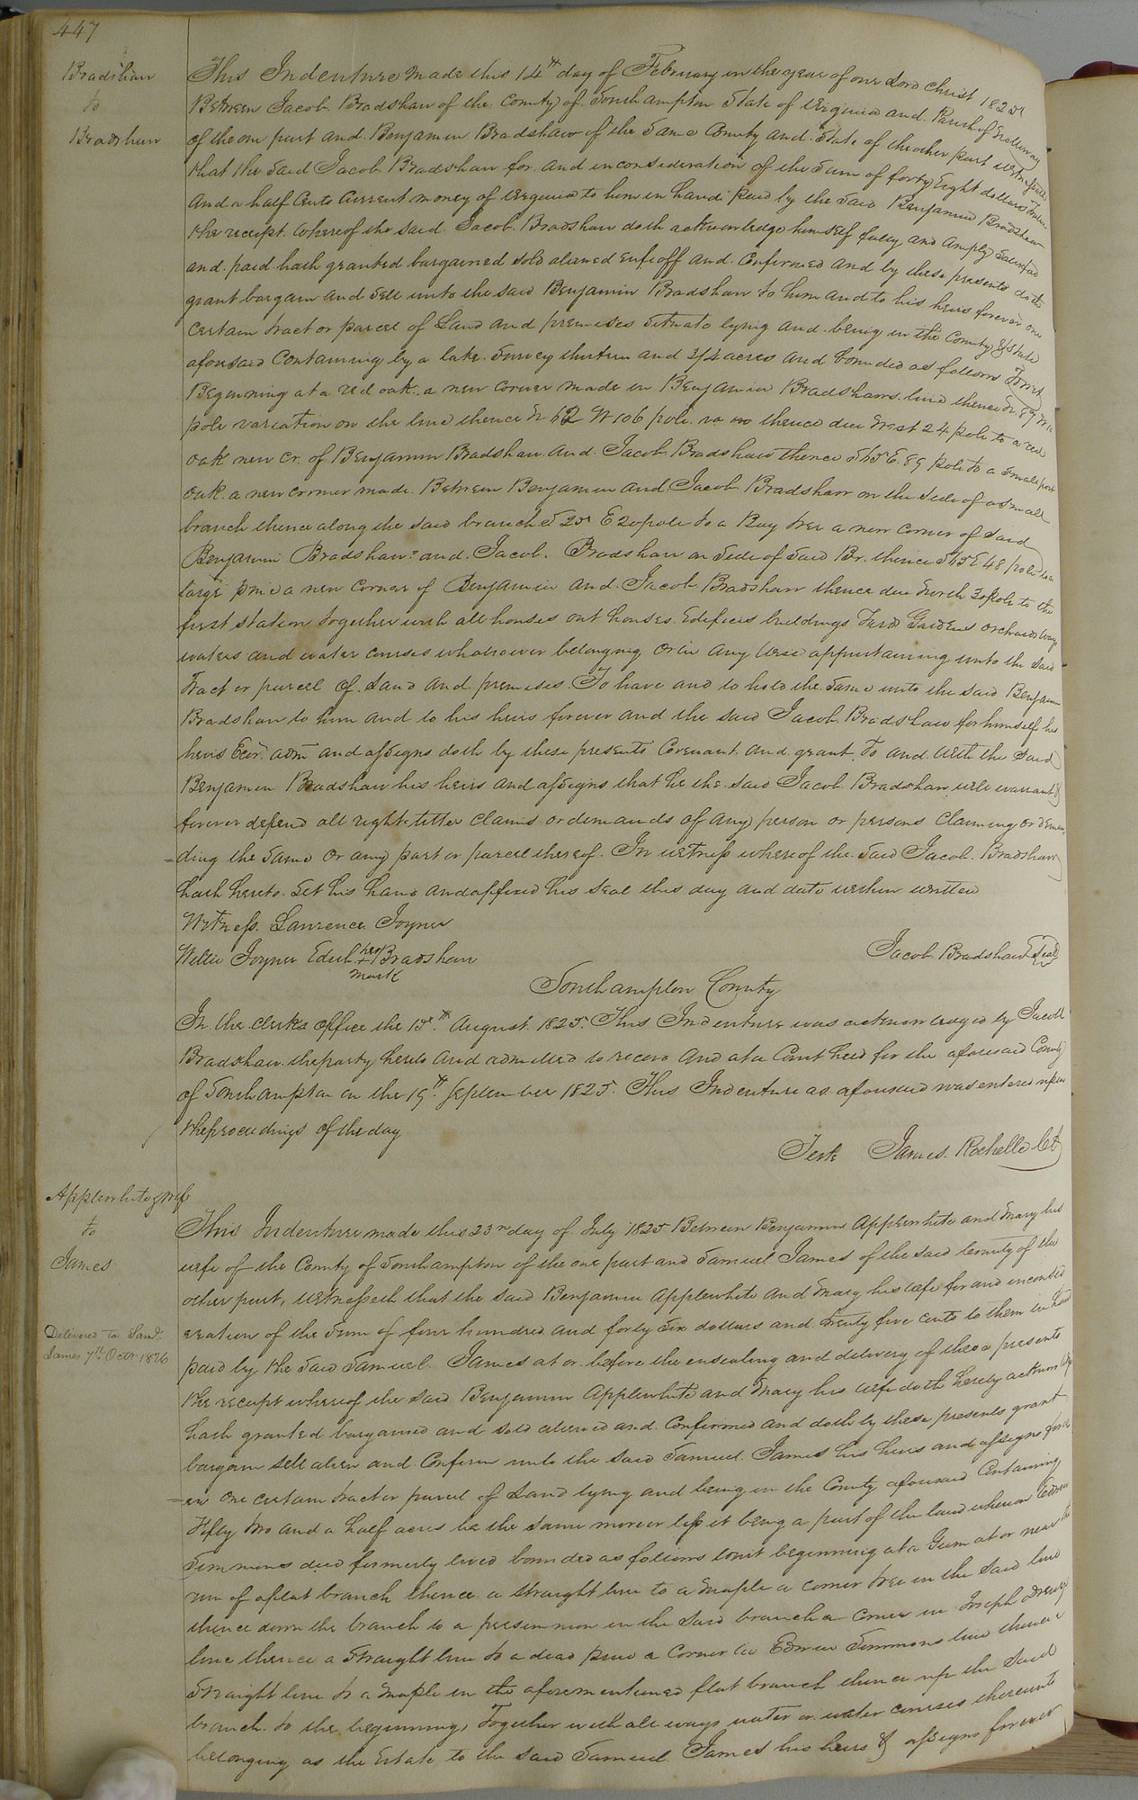 447
Bradshaw
to
Bradshaw
This Indenture made this 14th day of February in the year of our Lord Christ 1825
Between Jacob Bradshaw of the County of Southampton State of Virginia and Parish of Nottoway
of the one part and Benjamin Bradshaw of the Same County and State of the other part Witnesseth
that the Said Jacob Bradshaw for and in consideration of the Sum of forty Eight dollars
and a half Cents Current money of Virginia to him in hand paid by the Said Benjamin Bradshaw
the receipt whereof the said Jacob Bradshaw doth acknowledge himself fully and amply Satisfied
and paid hath granted bargained sold aliened enfeoff and Confirmed and by these presents doth
grant bargain and Sell unto the Said Benjamin Bradshaw to him and to his heirs forever one
certain tract or parcel of Land and premises Situate lying and being in the County & State
aforesaid Containing by a late Survey thirteen and 3/4 acres and bounded as follows Towit
Beginning at a red oak a new corner made in Benjamin Bradshaws line thence N. 89 W.
pole variation on the line thence N 62 W 106 pole thence due West 24 pole to a red
oak new Cr. of Benjamin Bradshaw and Jacob Bradshaw thence S 75 E. 89 pole to a small post
oak a new corner made Between Benjamin and Jacob Bradshaw on the Side of a Small
branch thence along the said branch S 25 E 20 pole to a Bay tree a new Corner of Said
Benjamin Bradshaw and Jacob Bradshaw on Side of Said Br. thence S 75 E 48 pole to a
large pine a new corner of Benjamin and Jacob Bradshaw thence due North 30 pole to the
first station together with all houses out houses Edifices buildings Yard Gardens orchards ways
waters and water courses whatsoever belonging or in any wise appurtaining unto the said
Tract or parcel of Land and premises To have and to hold the Same unto the said Benjamin
Bradshaw to him and to his heirs forever and the said Jacob Bradshaw for himself his
heirs Exor. adm and assigns doth by these presents Covenant and grant to and with the Said
Benjamin Bradshaw his heirs and assigns that he the said Jacob Bradshaw will warrant &
forever defend all right titter claims or demands of any person or persons claiming or deman
ding the Same or any part or parcel thereof. In witness whereof the Said Jacob Bradshaw
hath hereto Set his hand and affixed his Seal this day and date within written
Witness. Lawrence Joyner
Willie Joyner Edith her + Bradshaw
mark
Jacob Bradshaw Seal
Southampton County
In the clerks office the 15th August 1825. This Indenture was acknowledged by Jacob
Bradshaw the party hereto and admitted to record And at a Court held for the aforesaid County
of Southampton on the 19th September 1825 This Indenture as aforesaid was entered upon
the proceedings of the day
Teste James Rochelle Ct
Applewhite & wife
to
James
Delivered to Saml.
James 7th Octr 1826
This Indenture made this 23rd day of July 1825 Between Benjamin Applewhite and Mary his
wife of the County of Southampton of the one part and Samuel James of the said County of the
other part, Witnesseth that the said Benjamin Applewhite and Mary his wife for and in consid
eration of the Sum of four hundred and forty Six dollars and twenty five cents to them in hand
paid by the Said Samuel James at or before the ensealing and delivery of these presents
the receipt whereof the said Benjamin Applewhite and Mary his wife doth hereby acknowledge
hath granted bargained and sold aliened and Confirmed and doth by these presents grant
bargain sell alien and Confirm unto the said Samuel James his heirs and assigns forev
er one certain tract or parcel of Land lying and being in the County aforesaid Containing
Fifty two and a half acres be the same more or less it being a part of the land whereon Edwin
Simmons decd formerly lived bounded as follows towit beginning at a Gum at or near the
run of aflat branch thence a straight line to a maple a corner tree in the Said line
thence down the branch to a persimmon in the Said branch a corner in Joseph Drewry
line thence a Straight line to a dead pine a Corner in Edwin Simmons line thence a
Straight line to a maple in the aforementioned flat branch thence up the Said
branch to the beginning, Together with all ways water or water courses thereunto
belonging as the Estate to the said Samuel James his heirs & assigns forever